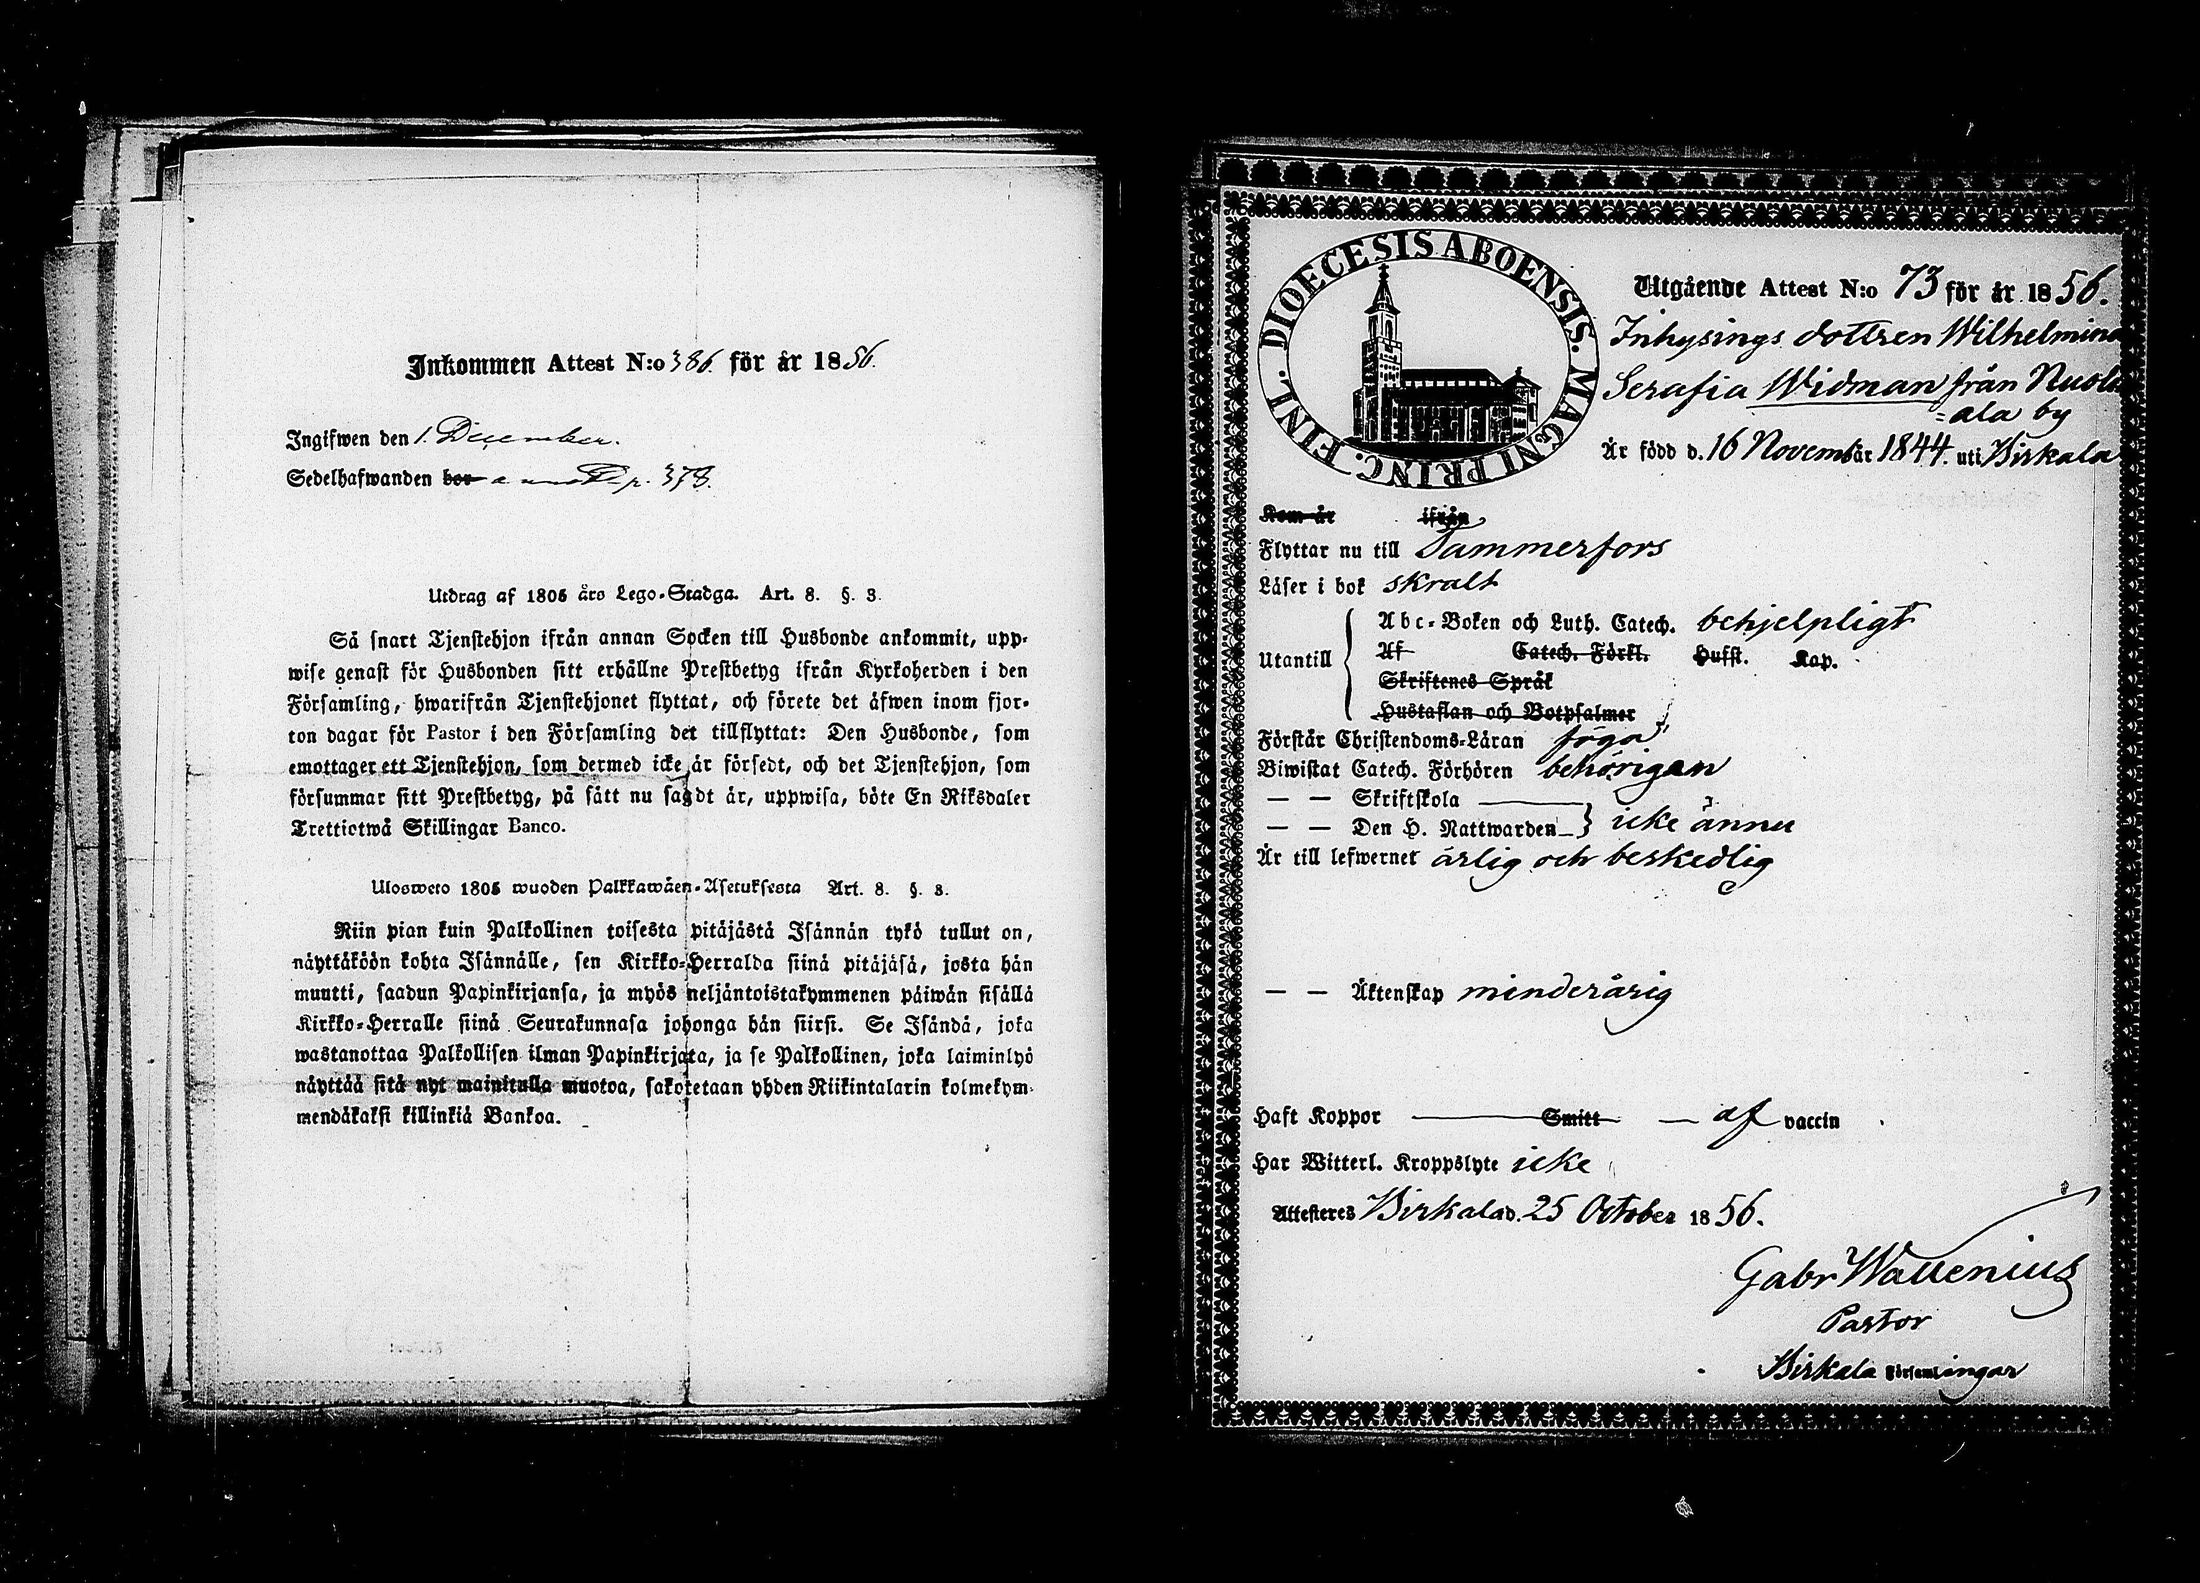 Inkommen Attest N:o 386. för år 1856.
Ingifwen den 1. December.
Sedelhafwanden bor annot. p. 378.
Utdrag af 1805 års Lego-Stadga. Art. 8. §. 3.
Så snart Tjenstehjon ifrån annan Socken till Husbonde ankommit, upp-
wise genast för Husbonden sitt erhållne Prestbetyg ifrån Kyrkoherden i den
Församling, hwarifrån Tjenstehjonet flyttat, och förete det äfwen inom fjor-
ton dagar för Pastor i den Församling det tillflyttat: Den Husbonde, som
emottager ett Tjenstehjon, som dermed icke är försedt, och det Tjenstehjon, som
försummar sitt Prestbetyg, på sätt nu sagdt är, uppwisa, böte En Riksdaler
Trettiotwå Skillingar Banco.
Ulosweto 1805 wuoden Palkkawäen-Asetuksesta Art. 8. §. 3.
Niin pian kuin Palkollinen toisesta pitäjästä Isännän tykö tullut on,
näyttäköön kohta Isännälle, sen Kirkko-Herralda siinä pitäjäsä, josta hän
muutti, saadun Papinkirjansa, ja myös neljäntoistakymmenen päiwän sisällä
Kirkko-Herralle siinä Seurakunnasa johonga hän siirsi. Se Isändä, joka
wastanottaa Palkollisen ilman Papinkirjata, ja se Palkollinen, joka laiminlyö
näyttää sitä nyt mainitulla muotoa, sakotetaan yhden Riikintalarin kolmekym-
mendäkaksi killinkiä Bankoa.
DIOECESIS ABOENSIS. MAGNI PRINC. FINL.
Utgående Attest N:o 73 för år 1856.
Inhysings dottren Wilhelmina
Serafia Widman från Nuoli
=ala by
Är född d. 16 November 1844. uti Birkala
Kom år ifrån
Flyttar nu till Tammerfors
Läser i bok skralt
Utantill
Abc-Boken och Luth. Catech. behjelpligt
Af Catech. Förkl. Hufst. Kap.
Skriftenes Språk
Hustaflan och Botpsalmer
Förstår Christendoms-Läran föga
Biwistat Catech. Förhören behörigan
— — Skriftskola
— — Den H. Nattwarden } icke ännu
Är till lefwernet ärlig och beskedlig
— — Äktenskap minderårig
Haft Koppor — Smitt — af vaccin
Har Witterl. Kroppslyte icke
Attesteres Birkala d. 25 October 1856.
Gabr Wallenius
Pastor
Birkala Församlingar